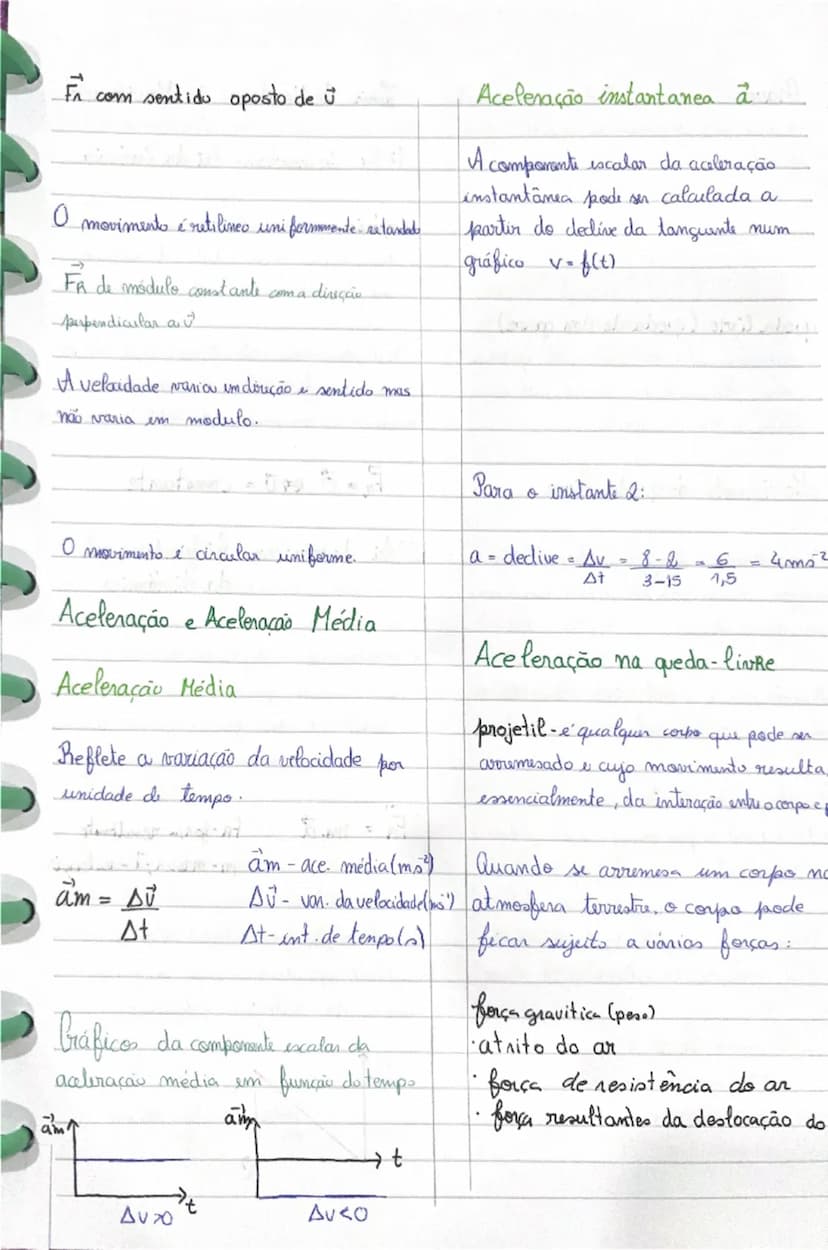 F⃗R com sentido oposto de v⃗
O movimento é retilineo uniformmente retardado
F⃗R de módulo constante com a direção
perpendicular a v⃗
A velocidade varia em direção e sentido mas
não varia em modulo.
O movimento é circular uniforme.
Aceleração e Aceleração Média
Aceleração Média
Reflete a variação da velocidade por
unidade de tempo.
a⃗m = Δv⃗ / Δt
a⃗m - ace. média (ms⁻²)
Δv⃗ - var. da velocidade (ms⁻¹)
Δt - int. de tempo (s)
Gráficos da componente escalar da
aceleração média em função do tempo
a⃗m
t
Δv>0
a⃗m
t
Δv<0
Aceleração instantanea a⃗
A componente escalar da aceleração
instantânea pode ser calculada a
partir do declive da tanguante num
gráfico v = f(t)
Para o instante 2:
a = declive = Δv/Δt = 8-2/3-15 = 6/1,5 = 4 ms⁻²
Aceleração na queda-livre
projetil - é qualquer corpo que pode ser
arremesado e cujo movimento resulta,
essencialmente, da interação entre o corpo e
Quando se arremesa um corpo na
atmosfera terrestre, o corpo pode
ficar sujeito a vários forças:
força gravitica (peso)
· atrito do ar
· força de resistência do ar
· força resultantes da deslocação do